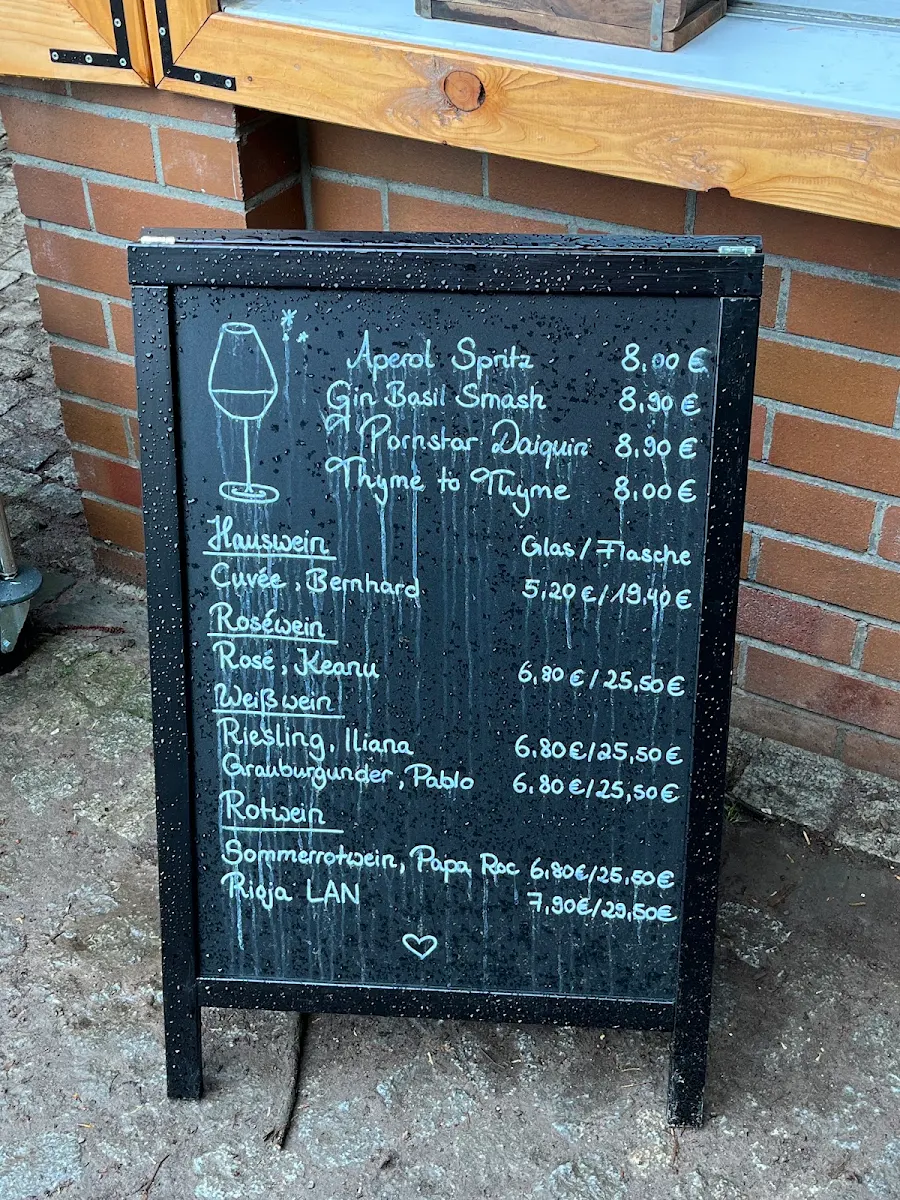 Aperol Spritz 8,00 €
Gin Basil Smash 8,90 €
Pornstar Daiquiri 8,90 €
Thyme to Thyme 8,00 €
Hauswein Glas/Flasche
Cuvée, Bernhard 5,20 €/19,40 €
Roséwein
Rosé, Keanu 6,80 €/25,50 €
Weißwein
Riesling, Iliana 6,80 €/25,50 €
Grauburgunder, Pablo 6,80 €/25,50 €
Rotwein
Sommerrotwein, Papa Roc 6,80€/25,50€
Rioja LAN 7,90€/29,50€